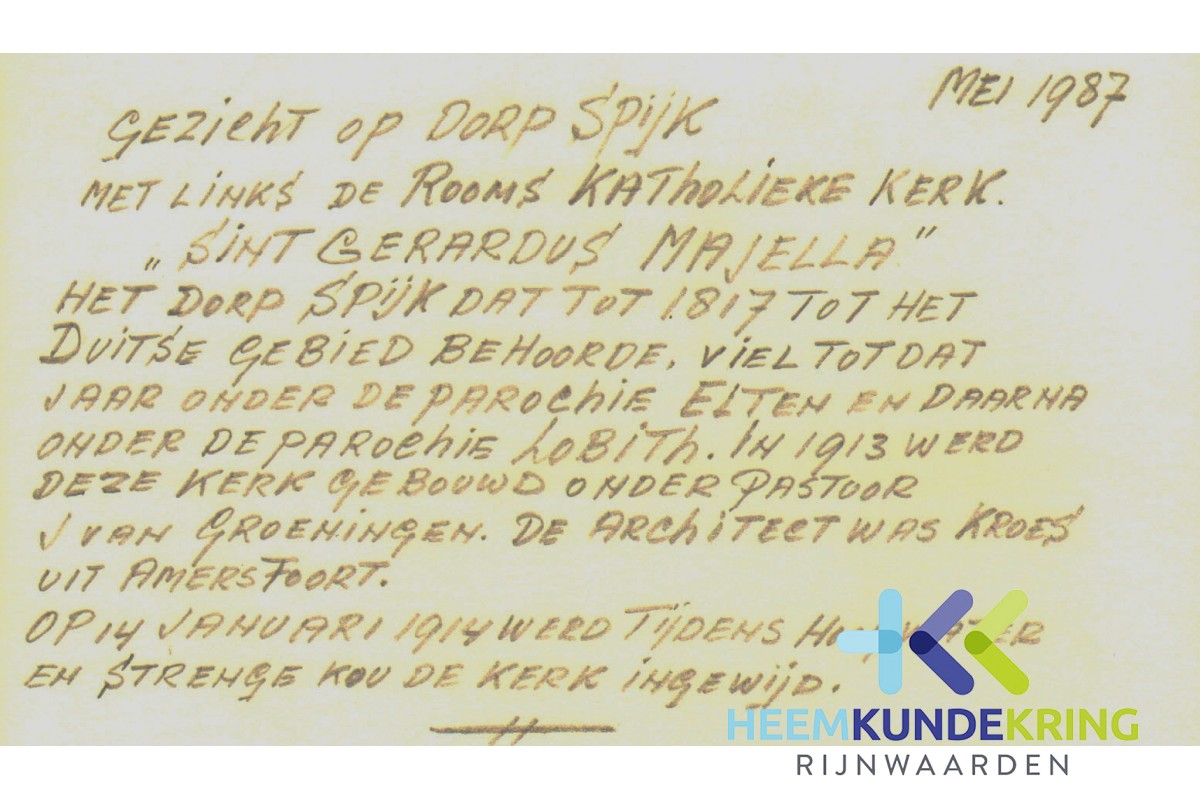 MEI 1987
GEZICHT OP DORP SPIJK
MET LINKS DE ROOMS KATHOLIEKE KERK.
„SINT GERARDUS MAJELLA”
HET DORP SPIJK DAT TOT 1817 TOT HET
DUITSE GEBIED BEHOORDE, VIEL TOT DAT
JAAR ONDER DE PAROCHIE ELTEN EN DAARNA
ONDER DE PAROCHIE LOBITH. IN 1913 WERD
DEZE KERK GEBOUWD ONDER PASTOOR
J VAN GROENINGEN. DE ARCHITECT WAS KROES
UIT AMERSFOORT.
OP 14 JANUARI 1914 WERD TIJDENS
EN STRENGE KOU DE KERK INGEWIJD.
HEEMKUNDEKRING
RIJNWAARDEN